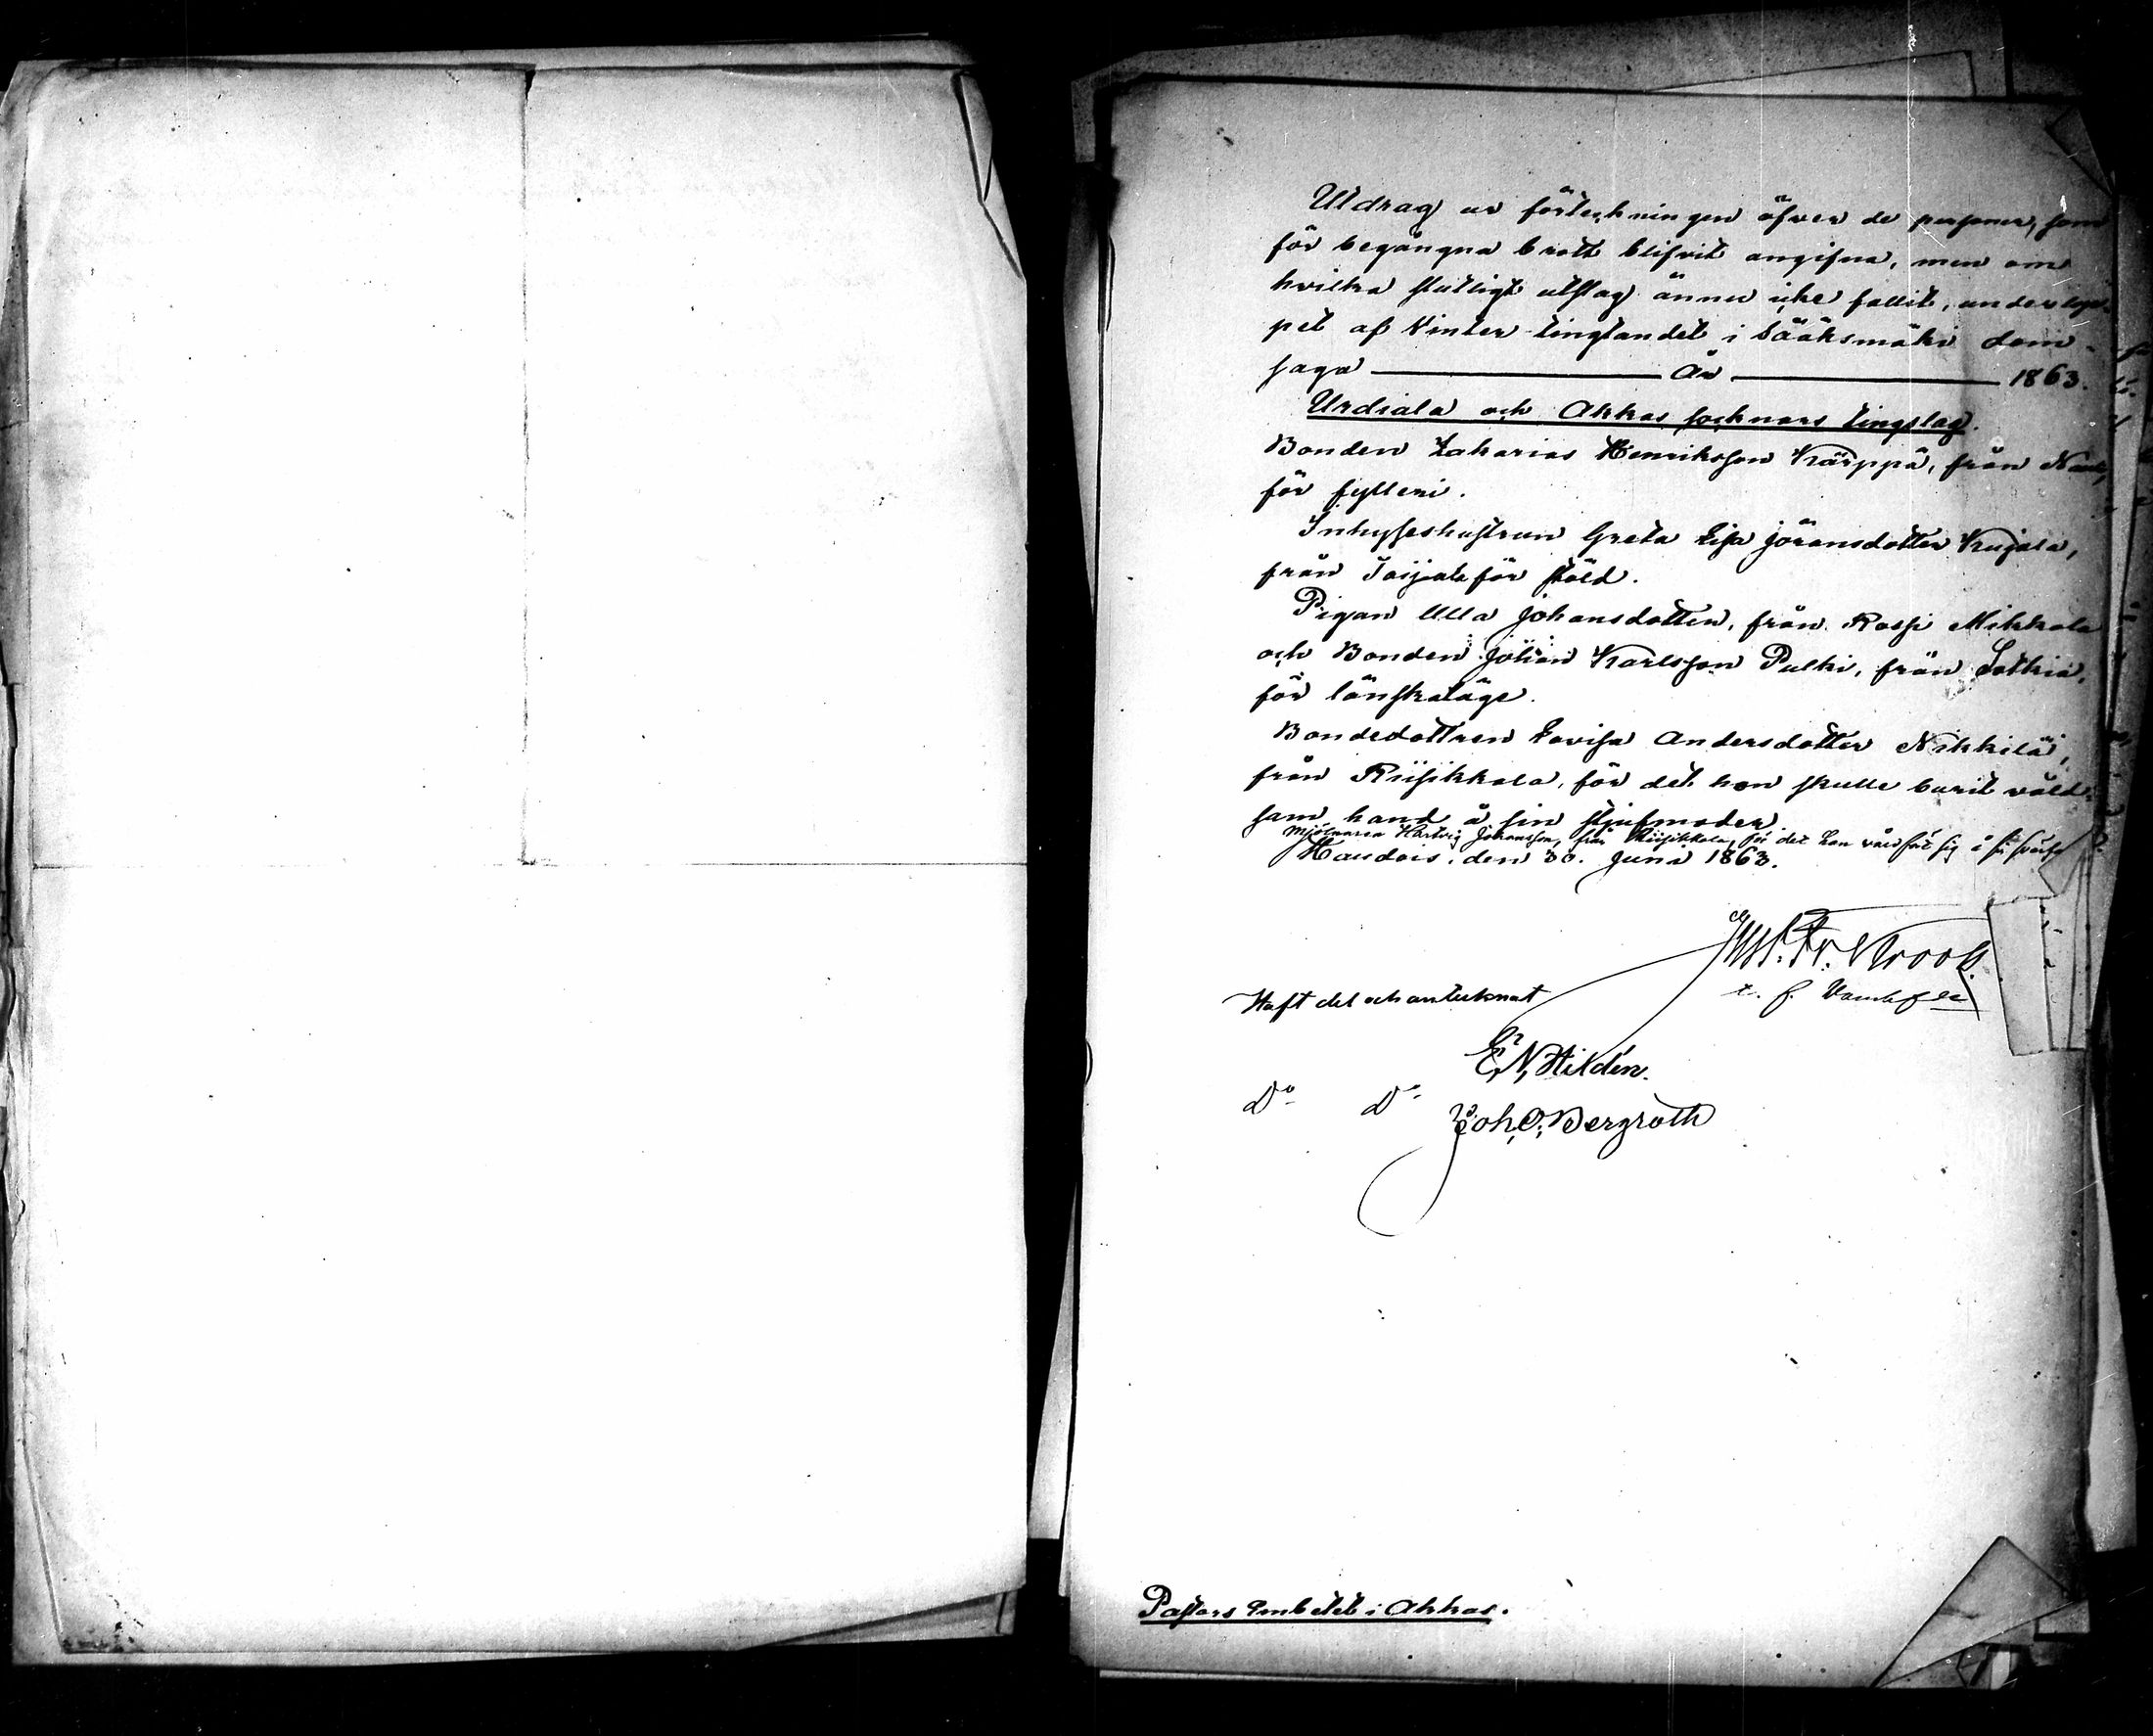 Utdrag ur förteckningen öfver de personer, som
för begångna brott blifvit angifna, men om
hvilka slutligt utslag ännu icke fallit, under lop-
pet af Vinter tingtandet i Sääksmäki dom-
saga ——— År ——— 1863.
Urdiala och Akkas socknars tingslag.
Bonden Zakarias Henriksson Kärppä, från
för fylleri.
Inhyseshustrun Greta Lisa Jöransdotter Kujala,
från Toijala för stöld.
Pigan Ulla Johansdotter, från Rossi Mikkola
och Bonden Johan Karlsson Pulki, från Sotkia,
för lönskaläge.
Bondedottren Lovisa Andersdotter Nikkilä,
från Riisikkala, för det hon skulle burit våld-
sam hand å sin stjufmoder.
Mjölnaren Hartvig Johansson, från Riisikkala, för det han våldfört sig å sin
Haudois, den 30. Juni 1863.
Gust. Fr. Krook.
t. f.
Haft del och antecknat
E. N. Hildén.
Do Do Joh. O. Bergroth
Pastors Embetet i Akkas.